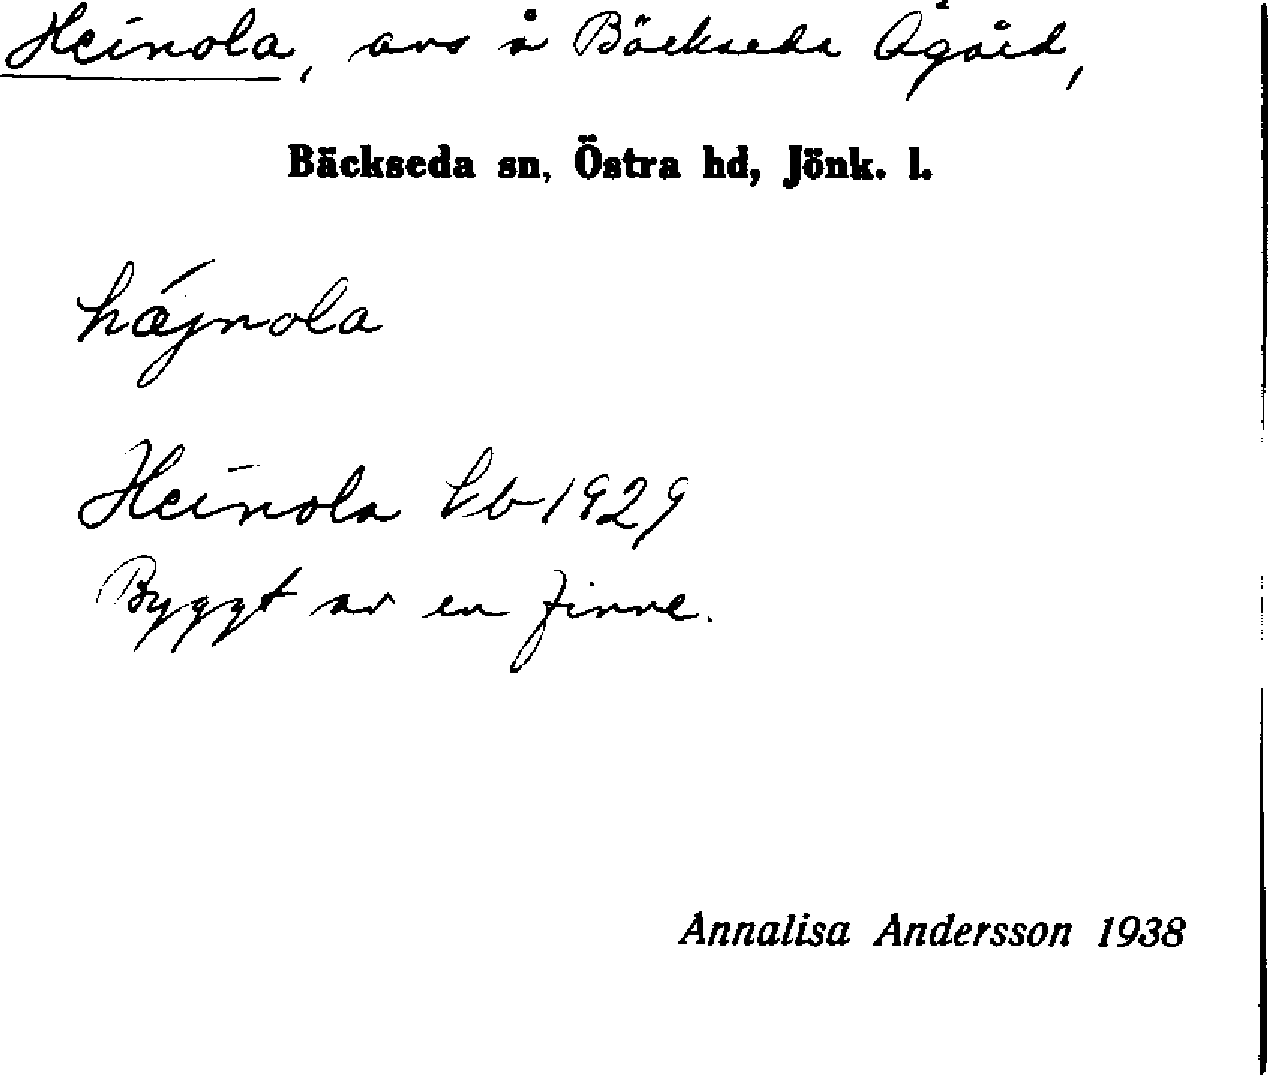 Heinola, avs å Bäckseda Ågård,
Bäckseda sn, Östra hd, Jönk. l.
hǽjnola
Heinola lb 1929
Byggt av en finne.
Annalisa Andersson 1938